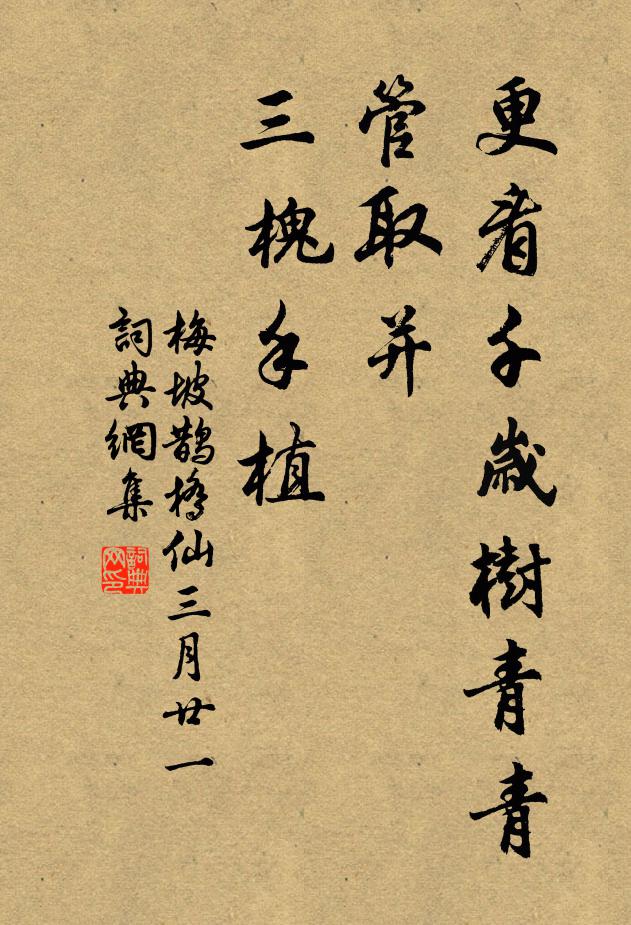 更看千歲樹青青
管取并
三槐手植
梅坡鵲橋仙三月廿一
詞典網集
詞典网印